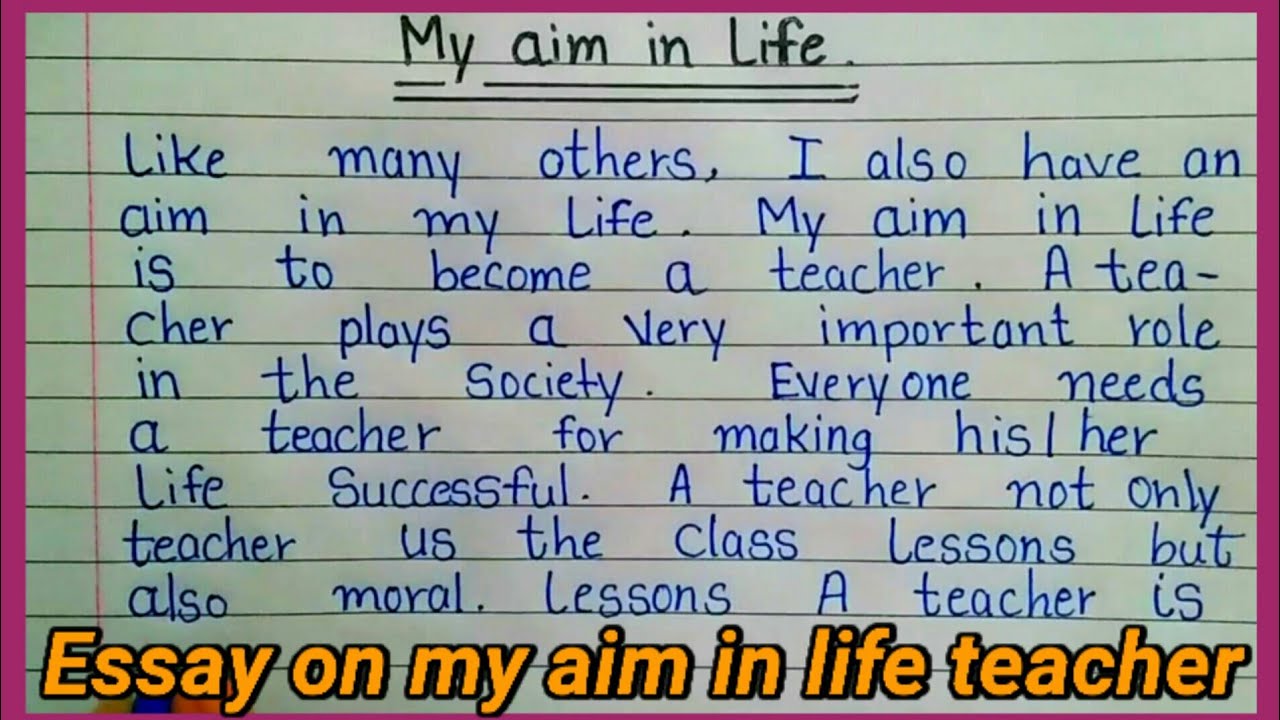 My aim in Life.
Like many others, I also have an
aim in my Life. My aim in Life
is to become a teacher. A tea-
cher plays a very important role
in the Society. Everyone needs
a teacher for making his/her
Life Successful. A teacher not only
teacher us the Class Lessons but
also moral. Lessons A teacher is
Essay on my aim in life teacher